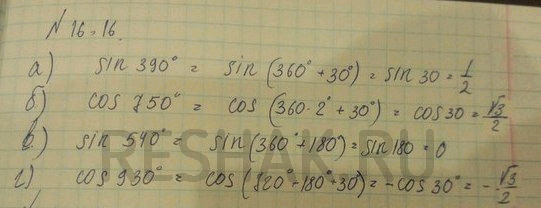 № 16.16.
а) sin 390° = sin (360° + 30°) = sin 30 = 1/2
б) cos 750° = cos (360·2° + 30°) = cos 30 = √3/2
в) sin 540° = sin (360° + 180°) = sin 180 = 0
г) cos 930° = cos (720° + 180° + 30°) = - cos 30° = - √3/2
RESHAK.RU